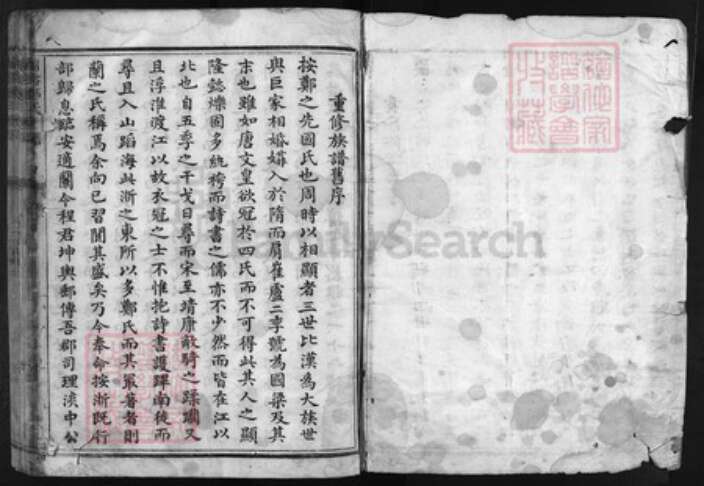 重修族譜舊序
按鄭之先國氏也周時以相顯者三世比漢為大族世
與巨家相婚媾入於隋而肩崔盧二李號為國梁及其
末也雖如唐文皇欲冠於四氏而不可得此其人之顯
隆懿爍固多紈袴而詩書之儒亦不少然而皆在江以
北也自五季之干戈日尋而宋至靖康敵騎之蹂躪又
且浮淮渡江以故衣冠之士不惟抱詩書護譜南徙而
尋且入山蹈海此浙之東所以多鄭氏而其最著者則
蘭之氏稱焉余向已習聞其盛矣乃今奉命按浙既行
部歸息臨安適閩令程君坤輿郵傳吾郡司理淡中公
FamilySearch